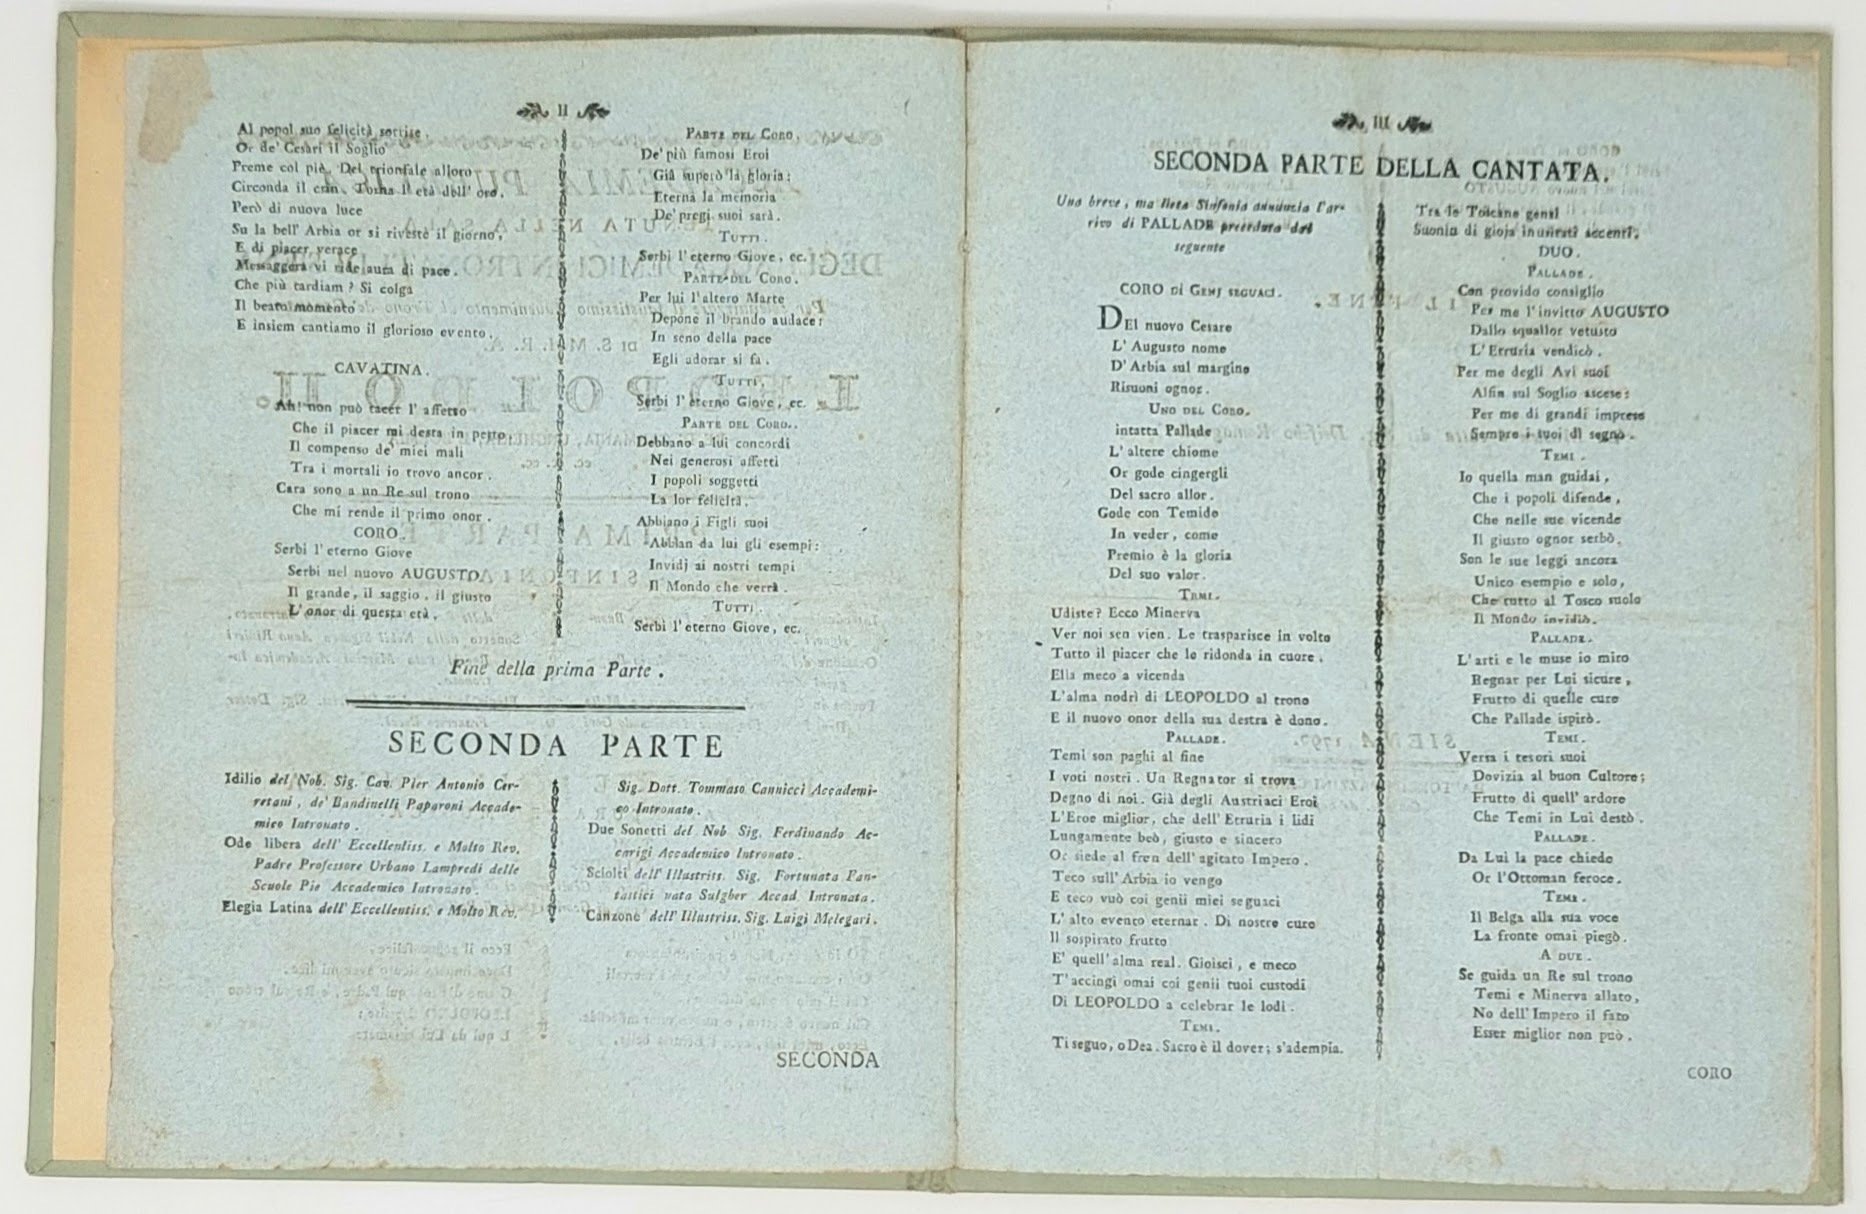 II
Al popol suo felicità sorrise.
Or de' Cesari il Soglio
Preme col piè. Del trionfale alloro
Circonda il crin. Torna l' età dell' oro.
Però di nuova luce
Su la bell' Arbia or si riveste il giorno,
E di piacer verace
Messaggera vi ride aura di pace.
Che più tardiam? Si colga
Il beato momento
E insiem cantiamo il glorioso evento.
CAVATINA.
Ah! non può tacer l' affetto
Che il piacer mi desta in petto
Il compenso de' miei mali
Tra i mortali io trovo ancor.
Cara sono a un Re sul trono
Che mi rende il primo onor.
CORO.
Serbi l' eterno Giove
Serbi nel nuovo AUGUSTO
Il grande, il saggio, il giusto
L' onor di questa età.
PARTE DEL CORO.
De' più famosi Eroi
Già superò la gloria:
Eterna la memoria
De' pregi suoi sarà.
TUTTI.
Serbi l' eterno Giove, ec.
PARTE DEL CORO.
Per lui l' altero Marte
Depone il brando audace:
In seno della pace
Egli adorar si fa.
TUTTI.
Serbi l' eterno Giove, ec.
PARTE DEL CORO.
Debbano a lui concordi
Nei generosi affetti
I popoli soggetti
La lor felicità.
Abbiano i Figli suoi
Abbian da lui gli esempi:
Invidj ai nostri tempi
Il Mondo che verrà.
TUTTI.
Serbi l' eterno Giove, ec.
Fine della prima Parte.
SECONDA PARTE
Idilio del Nob. Sig. Cav. Pier Antonio Cer-
retani, de' Bandinelli Paparoni Accade-
mico Intronato.
Ode libera dell' Eccellentiss. e Molto Rev.
Padre Professore Urbano Lampredi delle
Scuole Pie Accademico Intronato.
Elegia Latina dell' Eccellentiss. e Molto Rev.
Sig. Dott. Tommaso Cannicci Accademi-
co Intronato.
Due Sonetti del Nob Sig. Ferdinando Ac-
carigi Accademico Intronato.
Sciolti dell' Illustriss. Sig. Fortunata Fan-
tastici nata Sulgher Accad. Intronata.
Canzone dell' Illustriss. Sig. Luigi Melegari.
SECONDA
III
SECONDA PARTE DELLA CANTATA.
Una breve, ma lieta Sinfonia annunzia l'ar-
rivo di PALLADE preceduta dal
seguente
CORO di GENJ SEGUACI.
DEl nuovo Cesare
L' Augusto nome
D' Arbia sul margine
Risuoni ognor.
UNO DEL CORO.
intatta Pallade
L' altere chiome
Or gode cingergli
Del sacro allor.
Gode con Temide
In veder, come
Premio è la gloria
Del suo valor.
TEMI.
Udiste? Ecco Minerva
Ver noi sen vien. Le trasparisce in volto
Tutto il piacer che le ridonda in cuore.
Ella meco a vicenda
L' alma nodrì di LEOPOLDO al trono
E il nuovo onor della sua destra è dono.
PALLADE.
Temi son paghi al fine
I voti nostri. Un Regnator si trova
Degno di noi. Già degli Austriaci Eroi
L' Eroe miglior, che dell' Etruria i lidi
Lungamente beò, giusto e sincero
Or siede al fren dell' agitato Impero.
Teco sull' Arbia io vengo
E teco vuò coi genii miei seguaci
L' alto evento eternar. Di nostre cure
Il sospirato frutto
E' quell' alma real. Gioisci, e meco
T' accingi omai coi genii tuoi custodi
Di LEOPOLDO a celebrar le lodi.
TEMI.
Ti seguo, o Dea. Sacro è il dover; s'adempia.
Tra le Toscane genti
Suonin di gioja inusitati accenti.
DUO.
PALLADE.
Con provido consiglio
Per me l' invitto AUGUSTO
Dallo squallor vetusto
L' Etruria vendicò.
Per me degli Avi suoi
Alfin sul Soglio ascese:
Per me di grandi imprese
Sempre i suoi dì segnò.
TEMI.
Io quella man guidai,
Che i popoli difende,
Che nelle sue vicende
Il giusto ognor serbò.
Son le sue leggi ancora
Unico esempio e solo,
Che tutto al Tosco suolo
Il Mondo invidiò.
PALLADE.
L' arti e le muse io miro
Regnar per Lui sicure,
Frutto di quelle cure
Che Pallade ispirò.
TEMI.
Versa i tesori suoi
Dovizia al buon Cultore;
Frutto di quell' ardore
Che Temi in Lui destò.
PALLADE.
Da Lui la pace chiede
Or l' Ottoman feroce.
TEMI.
Il Belga alla sua voce
La fronte omai piegò.
A DUE.
Se guida un Re sul trono
Temi e Minerva allato,
No dell' Impero il fato
Esser miglior non può.
CORO